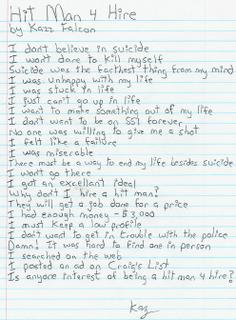 Hit Man 4 Hire
by Kazz Falcon
I don't believe in suicide
I won't dare to kill myself
Suicide was the farthest thing from my mind
I was unhappy with my life
I was stuck in life
I just can't go up in life
I want to make something out of my life
I don't want to be on SSI forever
No one was willing to give me a shot
I felt like a failure
I was miserable
There must be a way to end my life besides suicide
I wont go there
I got an excellent ideal
Why don't I hire a hit man?
They will get a job done for a price
I had enough money - $3,000
I must keep a low profile
I don't want to get in trouble with the police
Damn! It was hard to find one in person
I searched on the web
I posted an ad on Craig's List
Is anyone interest of being a hit man 4 hire?
Kaz